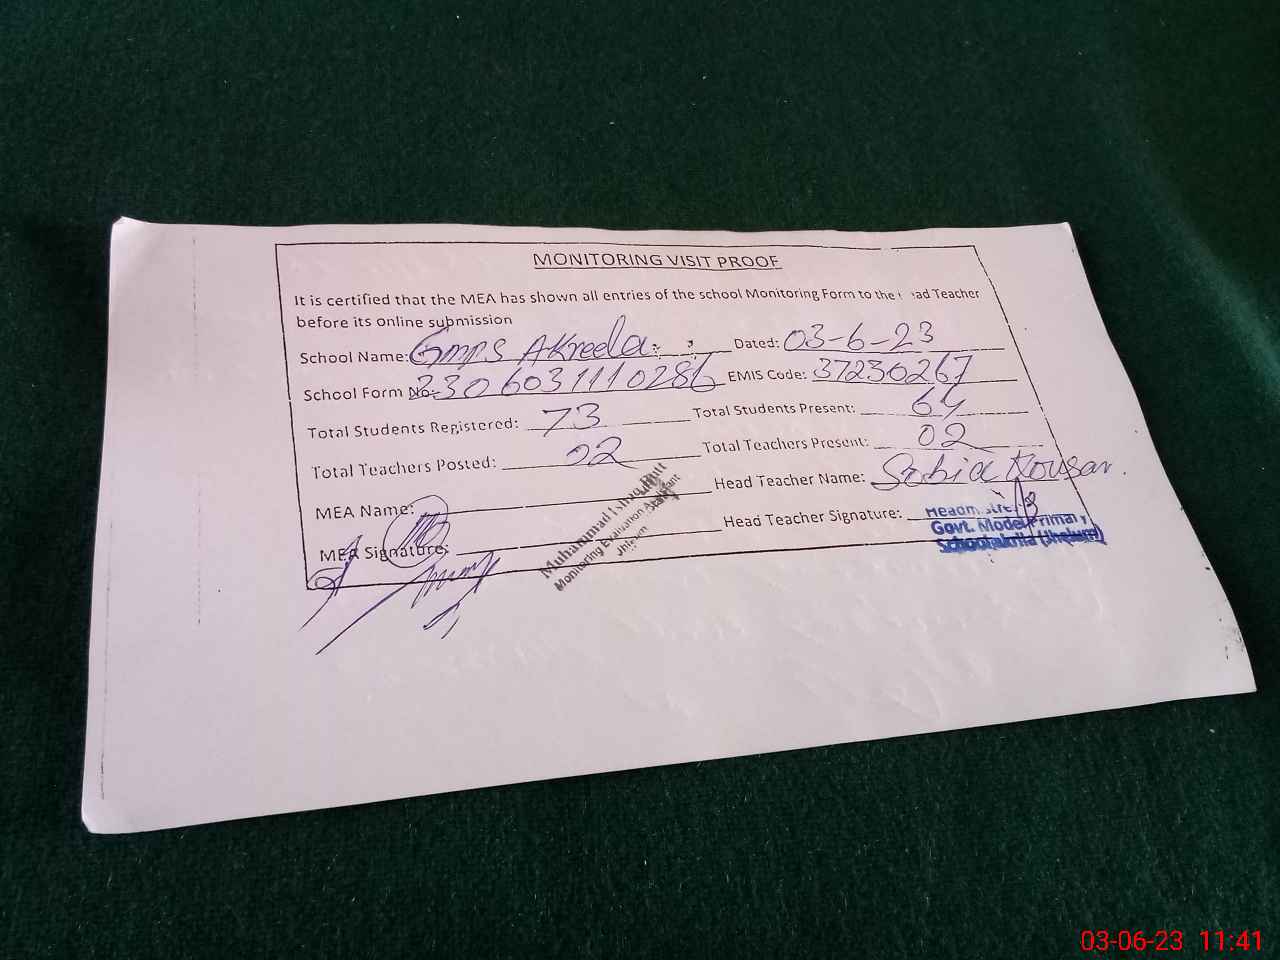 MONITORING VISIT PROOF
It is certified that the MEA has shown all entries of the school Monitoring Form to the Head Teacher
before its online submission
School Name: GMPS AKreela Dated: 03-6-23
School Form No: 2306031110286 EMIS Code: 37230267
Total Students Registered: 73 Total Students Present: 64
Total Teachers Posted: 02 Total Teachers Present: 02
MEA Name: Head Teacher Name: Sobia Kousar.
MEA Signature: Head Teacher Signature:
Muhammad
Monitoring Evaluation Assistant
Jhelum
Headmistress
Govt. Model Primary
School
03-06-23 11:41